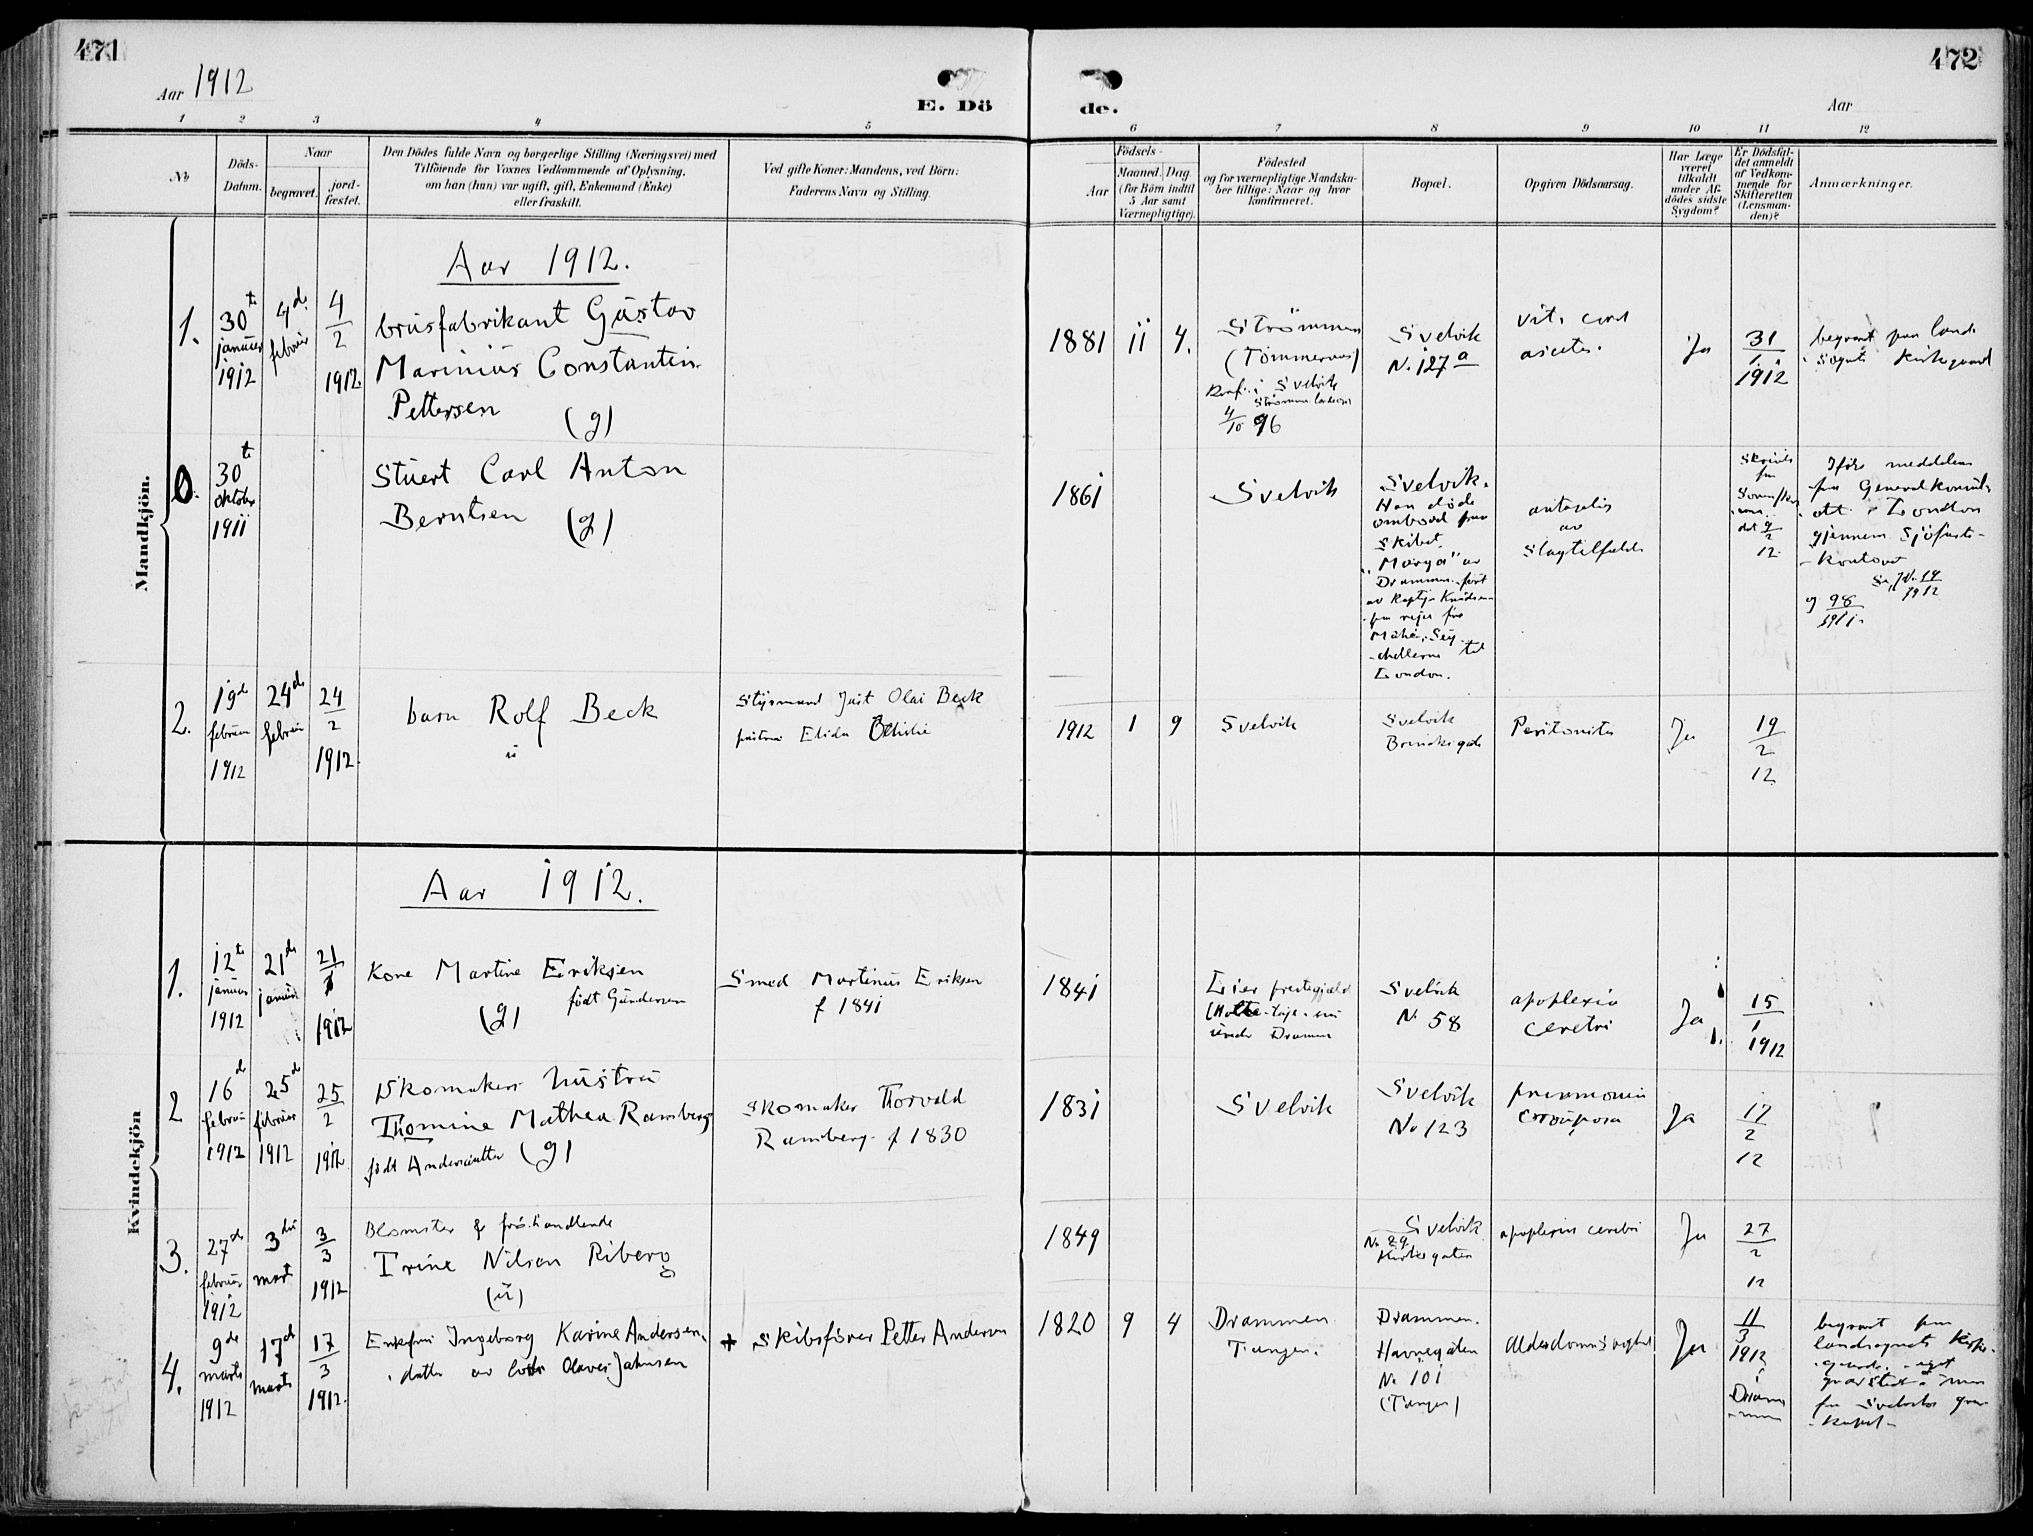 471
472
Aar 1912
E. Dö
de.
Aar
1 2 3 4 5 6 7 8 9 10 11 12
No
Döds-
Datum.
Naar
begravet.
jord-
fæstet.
Den Dödes fulde Navn og borgerlige Stilling (Næringsvei) med
Tilföiende for Voxnes Vedkommende af Oplysning,
om han (hun) var ugift, gift, Enkemand (Enke)
eller fraskilt.
Ved gifte Koner: Mandens, ved Börn:
Faderens Navn og Stilling.
Födsels-
Aar
Maaned. Dag
(for Börn indtil
5 Aar samt
Værnepligtige).
Födested
og for værnepligtige Mandska-
ber tillige: Naar og hvor
konfirmeret.
Bopæl.
Opgiven Dödsaarsag.
Har Læge
været
tilkaldt
under Af-
dödes sidste
Sygdom?
Er Dödsfal-
det anmeldt
af Vedkom-
mende for
Skifteretten
(Lensman-
den)?
Anmærkninger.
Mandkjön.
Aar 1912.
1.
30te
januar
1912
4de
februar
4/2
1912.
brusfabrikant Gustav
Marinius Constantin
Pettersen (g)
1881 11 4.
Strömmen
(Tömmeraas)
Konf. i Svelvik
4/10 96
Svelvik
N. 127a
vit. cord
Ja
31/1
1912
begravet paa land-
sognets Kirkegaard
0.
30te
oktober
1911
Stuert Carl Anton
Berntsen (g)
1861
Svelvik
Svelvik.
Han döde
ombord paa
Skibet
"Marga" av
Drammen, fört
av Kaptja Knudsen
paa rejse fra
Mahé, Sey-
chellerne til
London.
antagelig
av
Slagtilfælde
Skriv
fra
det 9/2
12.
Iflg. meddelelse
fra Generalkonsul-
atet i London
gjennem Sjöfarts-
kontoret
Se J.N. 14/1912
og 98/1911
2.
19de
februar
1912
24de
februar
24/2
1912.
barn Rolf Beck
u
Styrmand Just Olai Beck
hustru Elida
1912 1 9
Svelvik
Svelvik
Peritonitis
Ja
19/2
12.
Kvindekjön
Aar 1912.
1.
12te
januar
1912
21de
januar
21/1
1912
Kone Martine Eriksen
(g) födt Gundersen
Smed Martinus Eriksen
f 1841
1841
Lier prestegjæld
under Drammen
Svelvik
N. 58
apoplexia
cerebri
Ja
15/1
1912
2
16de
februar
1912
25de
februar
1912
25/2
1912
Skomakers hustru
Thomine Mathea Ramberg
födt Andersdatter (g)
Skomaker Thorvald
Ramberg f 1830
1831
Svelvik
Svelvik
No 123
pneumonia
crouposa
Ja
17/2
12
3.
27de
februar
1912
3die
mart
3/3
1912
Blomster & fröhandlende
Trine Nilsen Riberg
(u)
1849
Svelvik
No 29
Kirkegaten
apoplexia cerebri
Ja
27/2
12
4.
9de
marts
1912
17de
marts
17/3
1912.
Enkefru Ingeborg Karine Andersen,
datter av lods Olaves Jahnsen
+ Skibsförer Petter Andersen
1820 9 4
Drammen
Tangen.
Drammen.
Havnegaten
No 101
(Tangen)
Alderdomssvaghed
Ja
11/3
1912
Dram-
men
begravet paa
landsognets Kirke-
gaard
fra Svelviks grav-
kapel